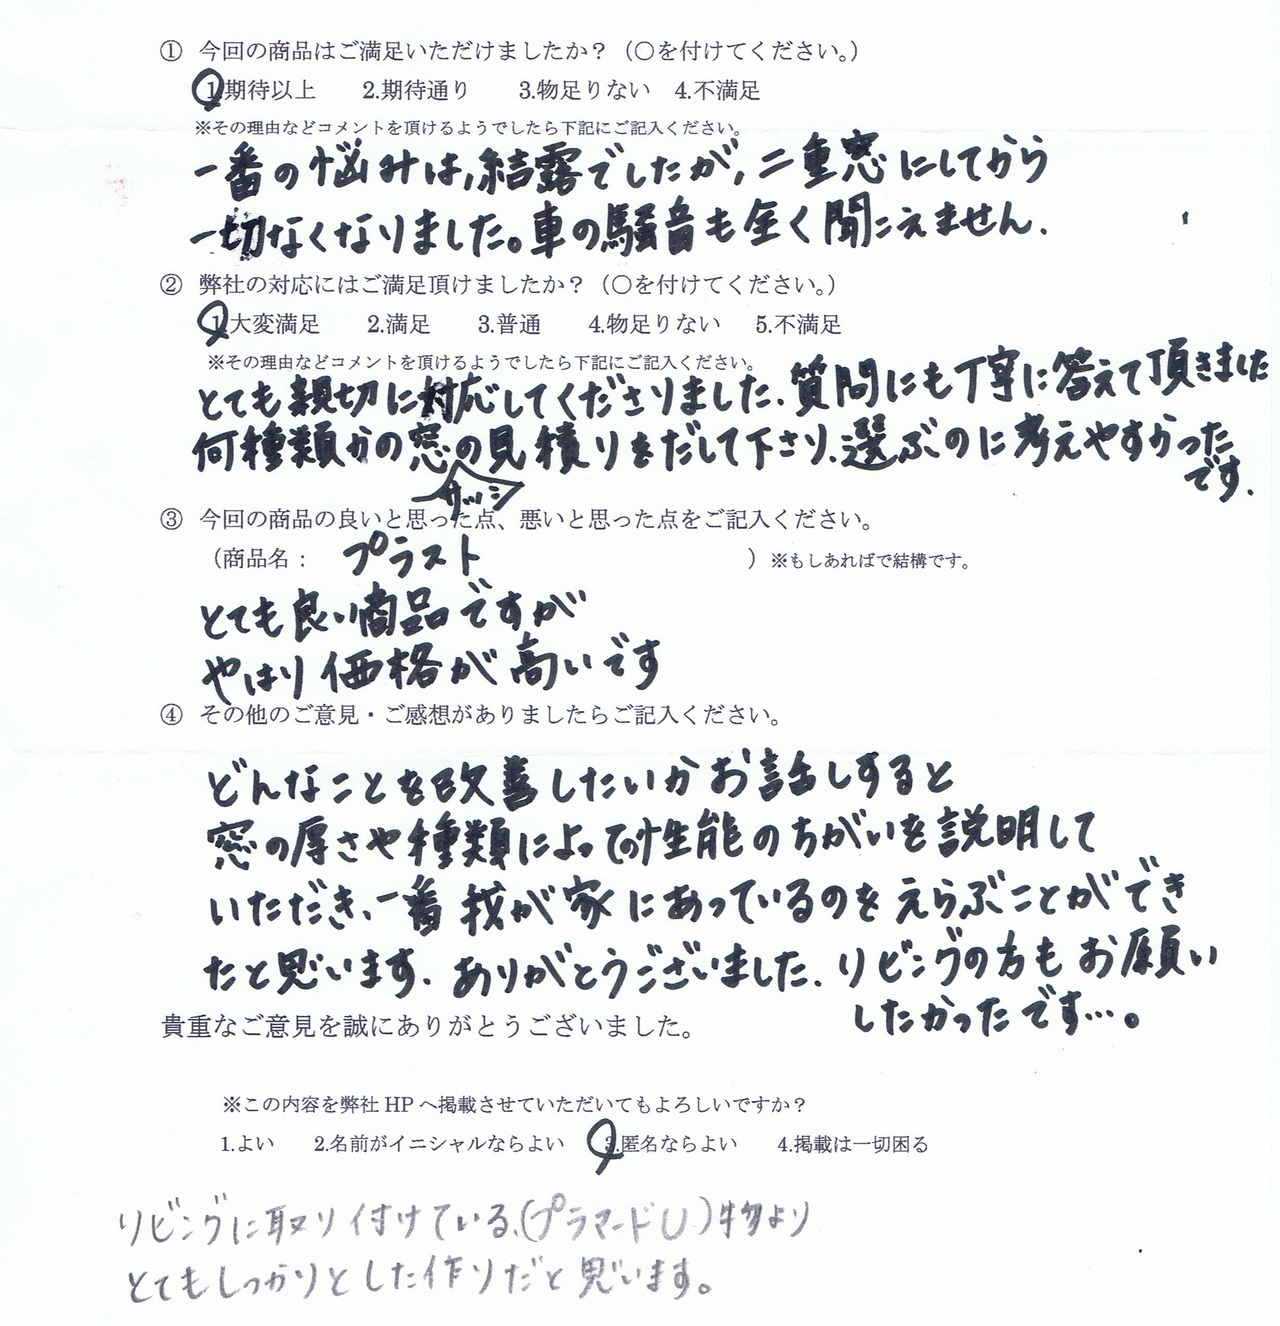 ① 今回の商品はご満足いただけましたか？（○を付けてください。）
1.期待以上 2.期待通り 3.物足りない 4.不満足
※その理由などコメントを頂けるようでしたら下記にご記入ください。
一番の悩みは,結露でしたが,二重窓にしてから
一切なくなりました。車の騒音も全く聞こえません.
② 弊社の対応にはご満足頂けましたか？（○を付けてください。）
1.大変満足 2.満足 3.普通 4.物足りない 5.不満足
※その理由などコメントを頂けるようでしたら下記にご記入ください。
とても親切に対応してくださりました.質問にも丁寧に答えて頂きました
何種類かの窓の見積りをだして下さり.選ぶのに考えやすかった
です.
サッシ
③ 今回の商品の良いと思った点、悪いと思った点をご記入ください。
（商品名： プラスト ）※もしあればで結構です。
とても良い商品ですが
やはり価格が高いです
④ その他のご意見・ご感想がありましたらご記入ください。
どんなことを改善したいかお話しすると
窓の厚さや種類によっての性能のちがいを説明して
いただき、一番我が家にあっているのをえらぶことができ
たと思います.ありがとうございました.リビングの方もお願い
したかったです…。
貴重なご意見を誠にありがとうございました。
※この内容を弊社 HP へ掲載させていただいてもよろしいですか？
1.よい 2.名前がイニシャルならよい 3.匿名ならよい 4.掲載は一切困る
リビングに取り付けている、(プラマードU)物より
とてもしっかりとした作りだと思います。